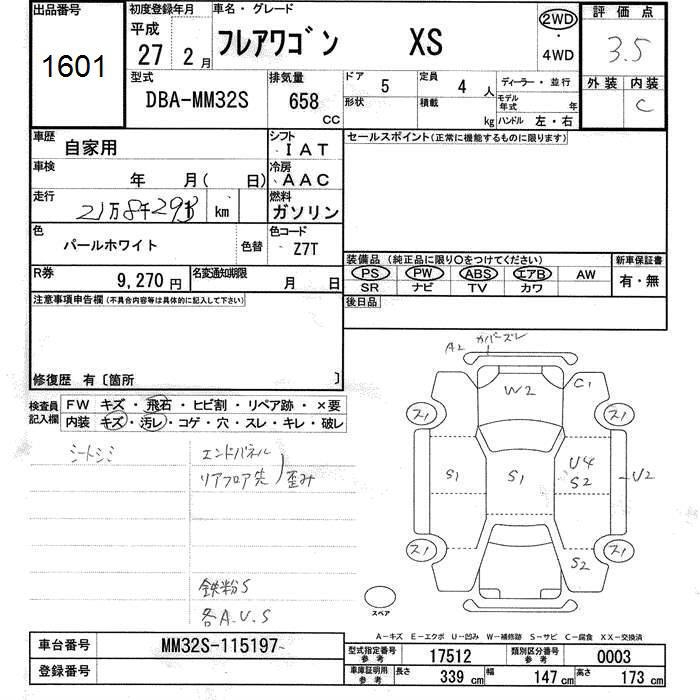 出品番号
1601
初度登録年月
平成
27 2 月
車名・グレード
フレアワゴン XS
2WD
・
4WD
評価点
3.5
外装 内装
C
型式
DBA-MM32S
排気量
658
CC
ドア 5
形状
定員 4 人
積載 kg
ディーラー・並行
モデル年式 年
ハンドル 左・右
車歴 自家用
シフト
IAT
車検 年 月( 日)
冷房
AAC
走行 21万8千29 km
燃料
ガソリン
色 パールホワイト 色替
色コード
Z7T
R券 9,270 円
名変通知期限 月 日
注意事項申告欄(不具合内容等は具体的に記入して下さい)
修復歴 有〔箇所 〕
セールスポイント(正常に機能するものに限ります)
装備品(純正品に限り○をつけてください)
PS PW ABS エアB AW
SR ナビ TV カワ
新車保証書
有・無
後日品
検査員
記入欄
FW キズ・飛石・ヒビ割・リペア跡・×要
内装 キズ・汚レ・コゲ・穴・スレ・キレ・破レ
シートシミ
エンドパネル
リアフロア先 歪み
鉄粉S
各A.U.S
A2 カバーズレ
W2
C1
ス1
ス1
S1
S1
U4
S2
U2
ス1
ス1
S2
スペア
A-キズ E-エクボ U-凹み W-補修跡 S-サビ C-腐食 XX-交換済
車台番号 MM32S-115197
登録番号
型式指定番号
参考
17512
類別区分番号
参考
0003
車庫証明用
参考
長さ 339 cm
幅 147 cm
高さ 173 cm